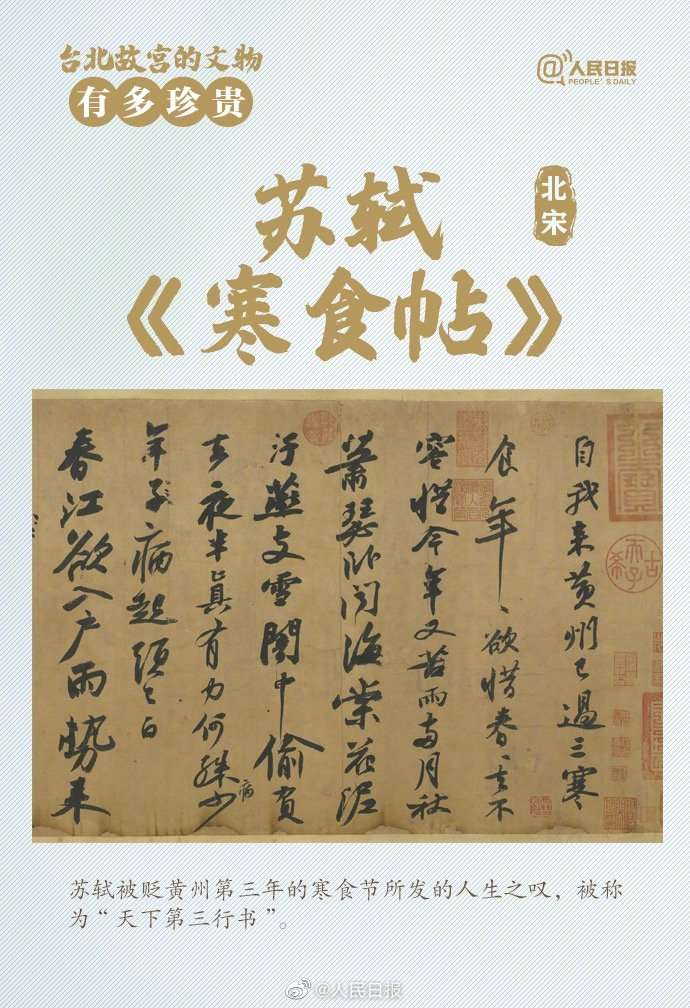 台北故宫的文物
有多珍贵
@人民日报
PEOPLE'S DAILY
北宋
苏轼
《寒食帖》
自我來黃州已過三寒
食年、欲惜春、去不
容惜今年又苦雨兩月秋
蕭瑟卧聞海棠花泥
汙燕支雪闇中偷負
去夜半真有力何殊病少
年子病起頭已白
春江欲入戶雨勢來
古希天子
苏轼被贬黄州第三年的寒食节所发的人生之叹，被称
为“天下第三行书”。
@人民日报